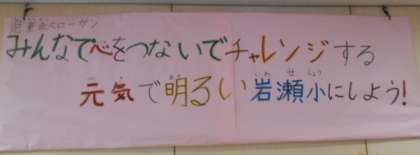 児童会スローガン
みんなで心をつないでチャレンジする
元気で明るい岩瀬小にしよう!